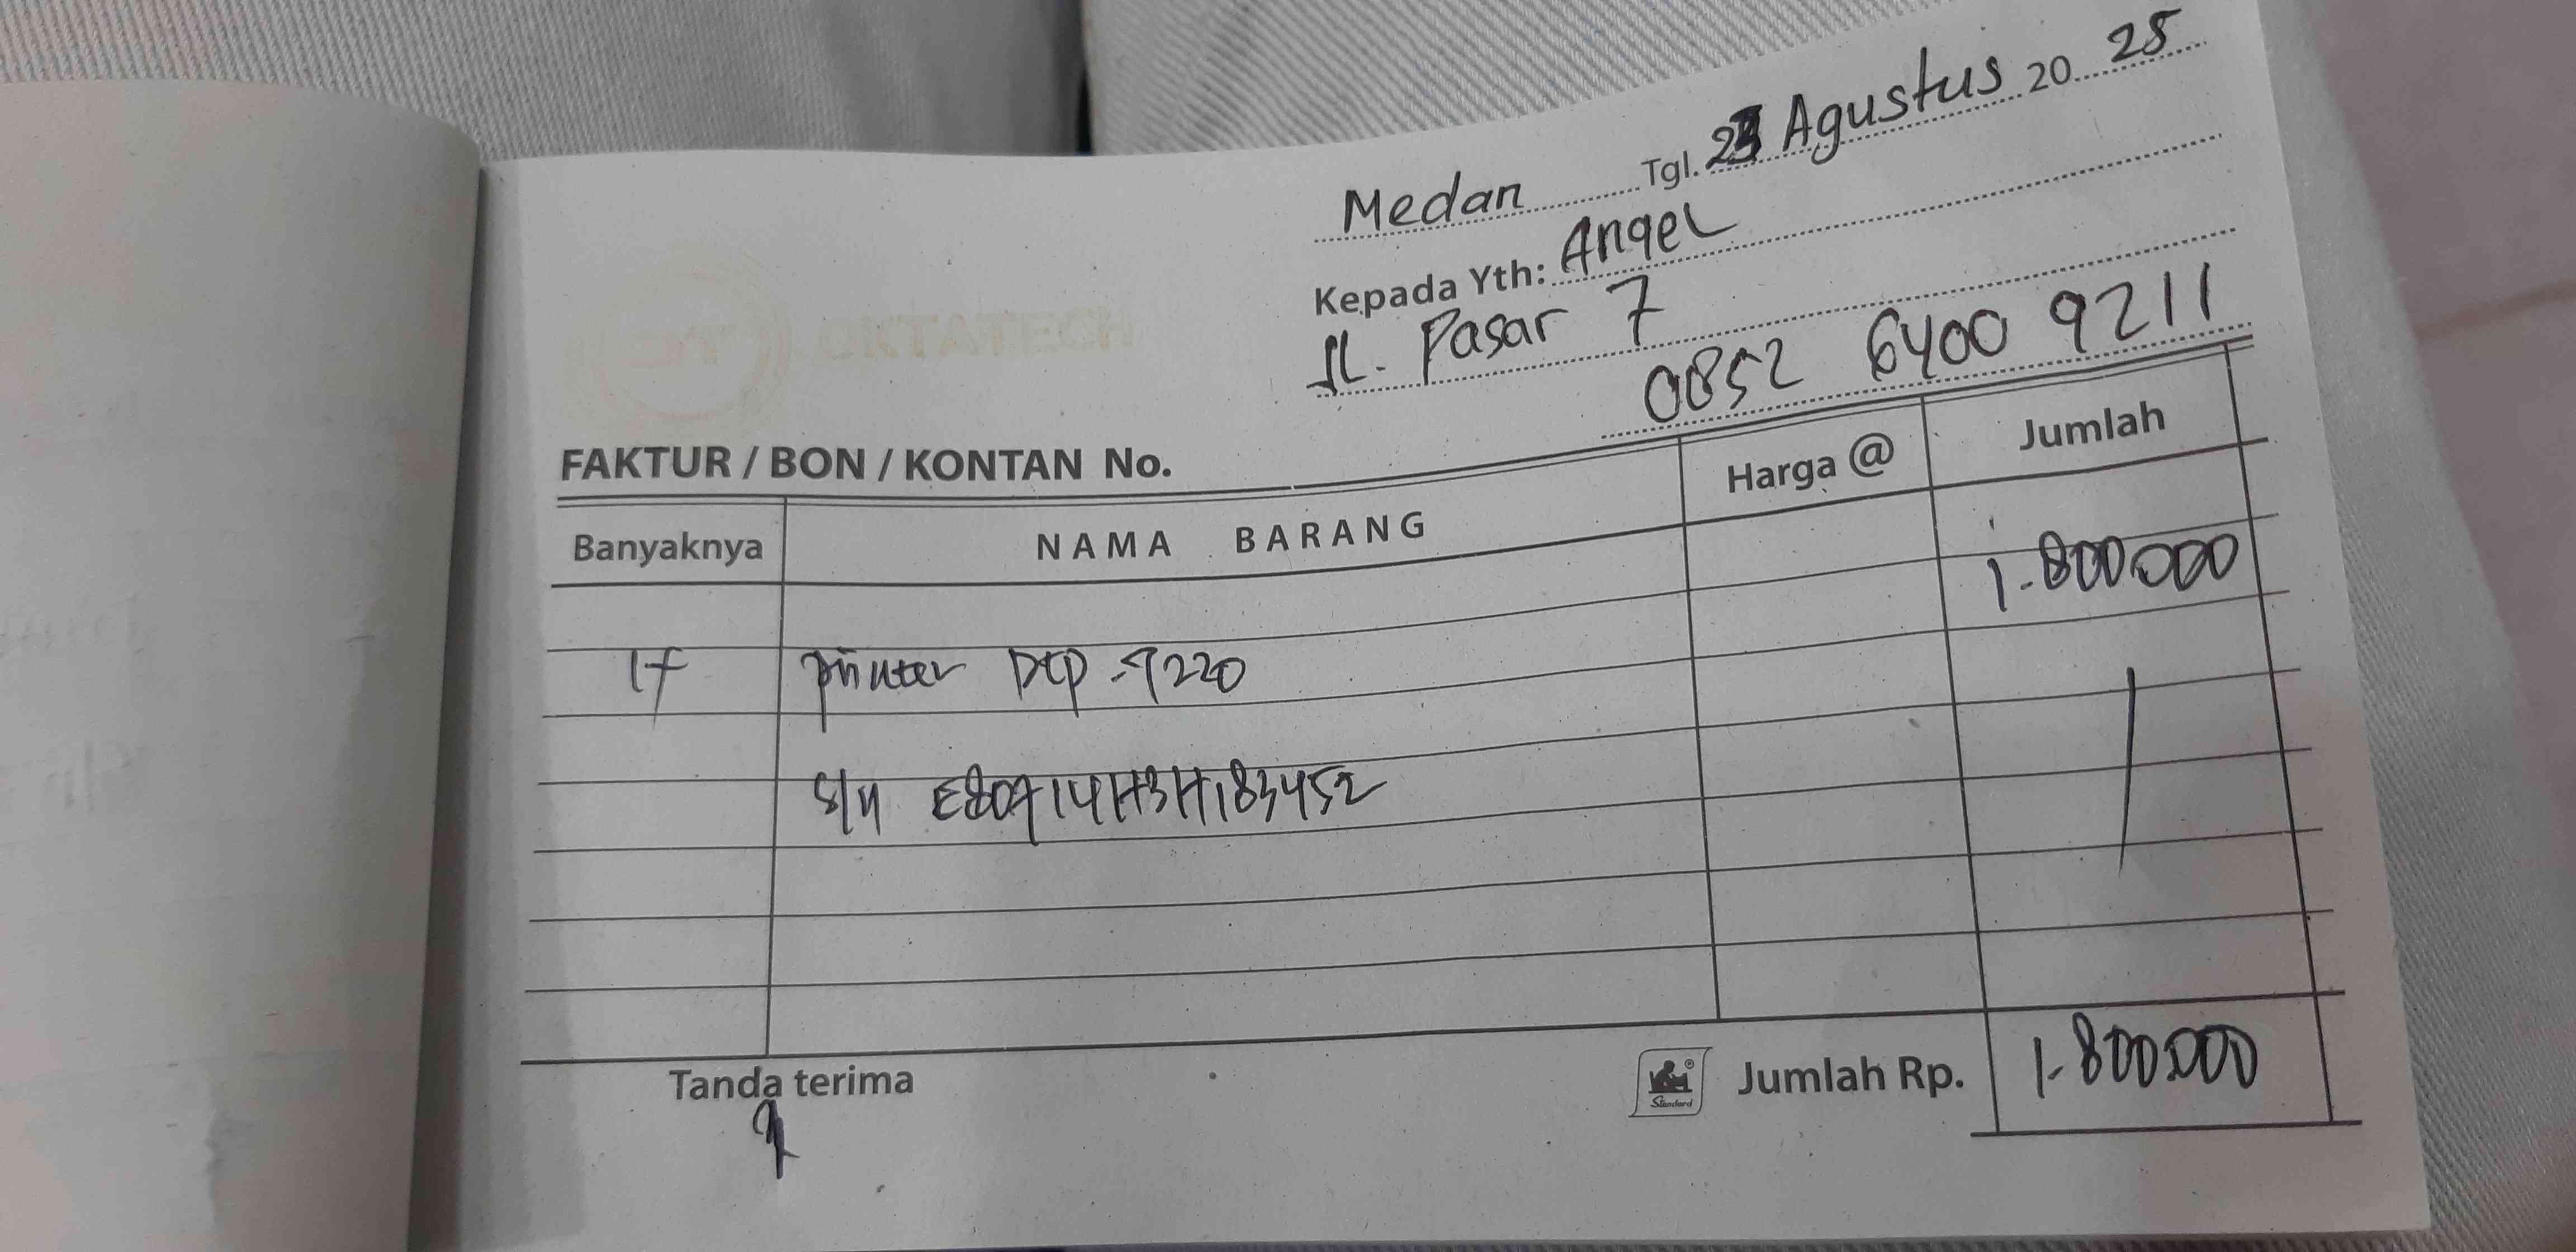 Medan Tgl. 23 Agustus 20 25
Kepada Yth: Angel
Jl. Pasar 7
0852 6400 9211
OKTATECH
FAKTUR / BON / KONTAN No.
Banyaknya NAMA BARANG Harga @ Jumlah
1.800.000
1 printer DCP -T220
S/N E80714H3H183452
Tanda terima
Standard
Jumlah Rp. 1.800.000